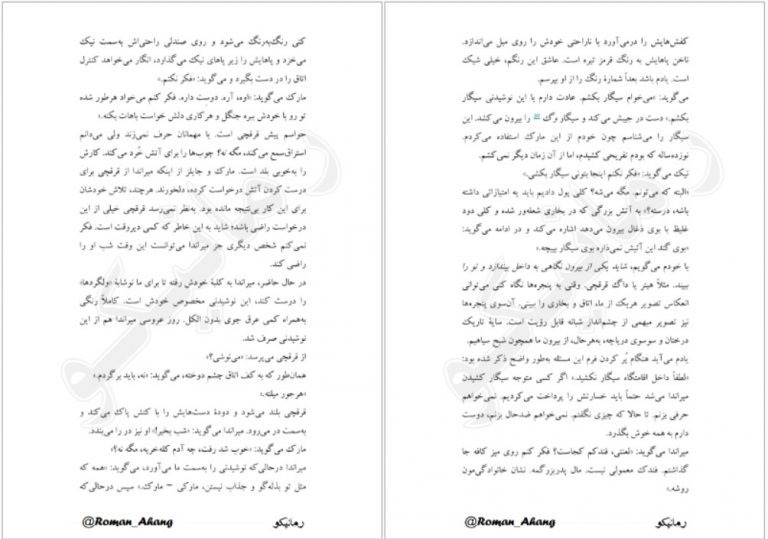 کفش‌هایش را درمی‌آورد با ناراحتی خودش را روی مبل می‌اندازد.
ناخن پاهایش به رنگ قرمز تیره است. عاشق این رنگم، خیلی شیک
است. یادم باشد بعداً شمارهٔ رنگ را از او بپرسم.
می‌گوید: «می‌خوام سیگار بکشم. عادت دارم با این نوشیدنی سیگار
بکشم.» دست در جیبش می‌کند و سیگار را بیرون می‌کشد. این
سیگار را می‌شناسم چون خودم از این مارک استفاده می‌کردم.
نوزده‌ساله که بودم تفریحی کشیدم، اما از آن زمان دیگر نمی‌کشم.
نیک می‌گوید: «فکر نکنم اینجا بتونی سیگار بکشی.»
«البته که می‌تونم. مگه می‌شه؟ کلی پول دادیم باید یه امتیازاتی داشته
باشه، درسته؟» به آتش بزرگی که در بخاری شعله‌ور شده و کلی دود
غلیظ با بوی ذغال بیرون می‌دهد اشاره می‌کند و در ادامه می‌گوید:
«بوی گند این آتیش نمی‌ذاره بوی سیگار بپیچه.»
با خودم می‌گویم، شاید یکی از بیرون نگاهی به داخل بیندازد و تو را
ببیند. مثلاً هیتر یا داگ قرقچی. وقتی به پنجره‌ها نگاه کنی می‌توانی
انعکاس تصویر هریک از ما، اتاق و بخاری را ببینی. آن‌سوی پنجره‌ها
نیز تصویر مبهمی از چشم‌انداز شبانه قابل رؤیت است. سایهٔ تاریک
درختان و سوسوی دریاچه، به‌هرحال، از بیرون ما همچون شبح سیاهیم.
یادم می‌آید هنگام پُر کردن فرم این مسئله به‌طور واضح ذکر شده بود:
«لطفاً داخل اقامتگاه سیگار نکشید.» اگر کسی متوجه سیگار کشیدن
میراندا می‌شد حتماً باید خسارتش را پرداخت می‌کردیم. نمی‌خواهم
حرفی بزنم. تا حالا که چیزی نگفتم. نمی‌خواهم ضدحال بزنم، دوست
دارم به همه خوش بگذرد.
میراندا می‌گوید: «لعنتی، فندکم کجاست؟ فکر کنم روی میز کافه جا
گذاشتم. فندک معمولی نیست. مال پدربزرگمه. نشان خانوادگی‌مون
روشه.»
رمانیکو @Roman_Ahang
کتی رنگ‌به‌رنگ می‌شود و روی صندلی راحتی‌اش به‌سمت نیک
خیز می‌گیرد و پاهایش را زیر پاهای نیک می‌گذارد، انگار می‌خواهد کنترل
اتاق را در دست بگیرد و می‌گوید: «فکر نکنم.»
مارک می‌گوید: «اوه، آره. دوست داره. فکر کنم می‌خواد هرطور شده
تو رو با خودش ببره جنگل و هرکاری دلش خواست باهات بکنه.»
حواسم پیش قرقچی است. با مهمانان حرف نمی‌زند ولی می‌دانم
استراق‌سمع می‌کند، مگه نه؟ چوب‌ها را برای آتش خُرد می‌کند. کارش
را به‌خوبی بلد است. مارک و جایلز از اینکه میراندا از قرقچی برای
درست کردن آتش درخواست کرده، دلخورند. هرچند، تلاش خودشان
برای این کار بی‌نتیجه مانده بود. به‌نظر نمی‌رسد قرقچی خیلی از این
درخواست راضی باشد؛ شاید به این خاطر که کمی دیروقت است. فکر
نمی‌کنم شخص دیگری جز میراندا می‌توانست این وقت شب او را
راضی کند.
در حال حاضر، میراندا به کلبهٔ خودش رفته تا برای ما نوشابهٔ «ولگردها»
را درست کند، این نوشیدنی مخصوص خودش است. کاملاً رنگی
به‌همراه کمی عرق جوی بدون الکل. روز عروسی میراندا هم از این
نوشیدنی صرف شد.
از قرقچی می‌پرسد: «می‌نوشی؟»
همان‌طور که به کف اتاق چشم دوخته، می‌گوید: «نه، باید برگردم.»
«هرجور میلته.»
قرقچی بلند می‌شود و دودهٔ دست‌هایش را با کتش پاک می‌کند و
به‌سمت در می‌رود. میراندا می‌گوید: «شب بخیر!» او نیز در را می‌بندد.
مارک می‌گوید: «خوب شد رفت، چه آدم کله‌خریه، مگه نه؟»
میراندا درحالی‌که نوشیدنی را به‌سمت ما می‌آورد، می‌گوید: «همه که
مثل تو بذله‌گو و جذاب نیستن، مارکی – مارک.» سپس درحالی‌که
رمانیکو @Roman_Ahang